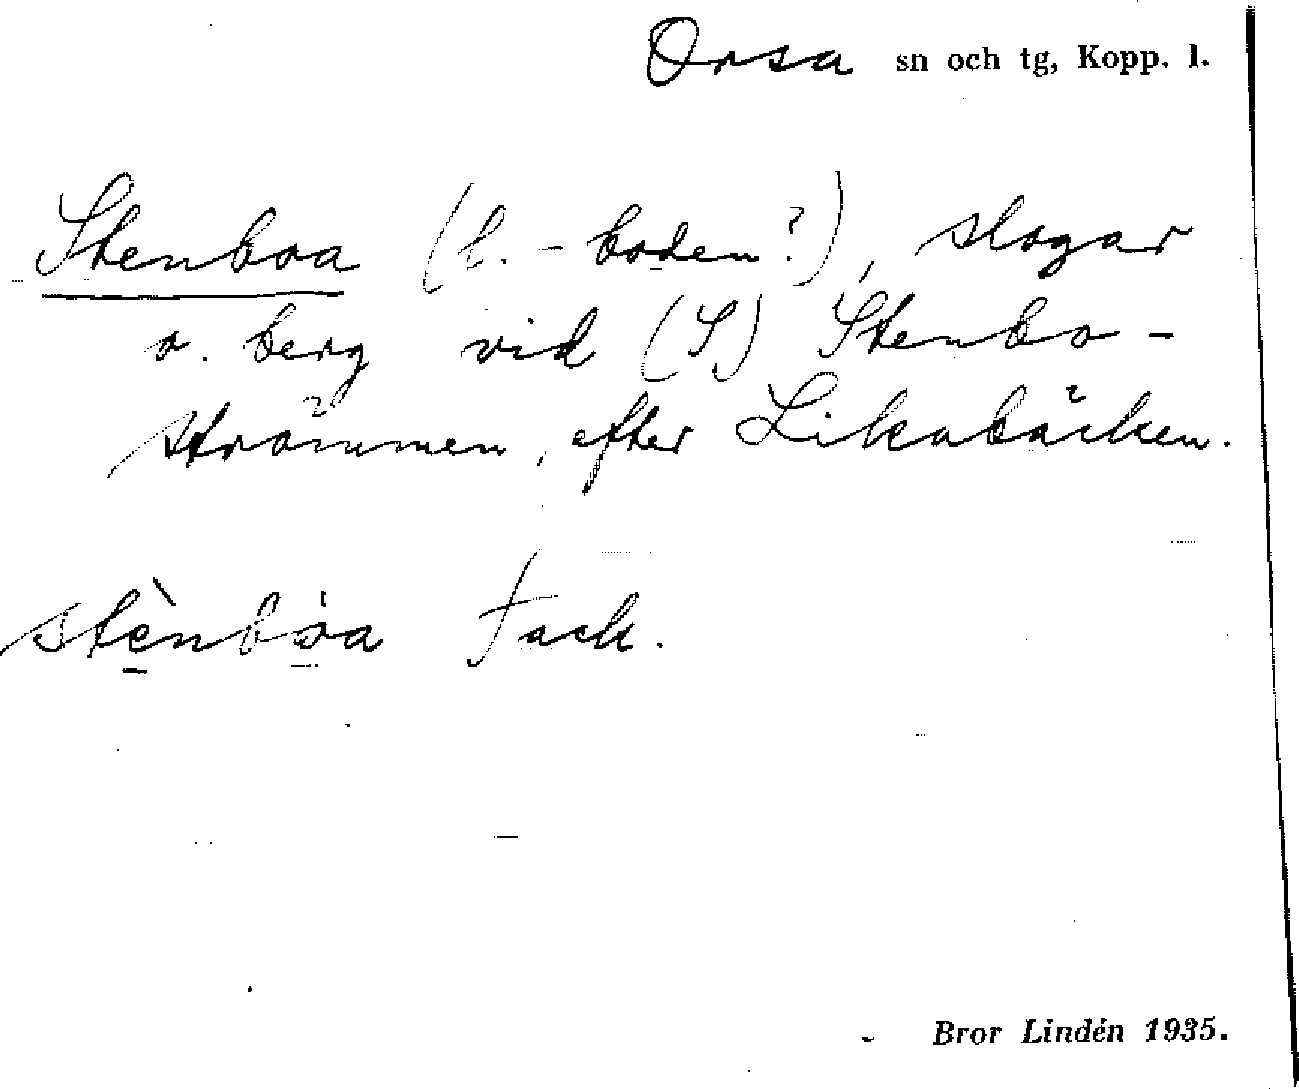 Orsa sn och tg, Kopp. l.
Stenboa (l. -boden?), slogar
o. berg vid (S) Stenbo-
strömmen, efter Likabäcken.
stènbòa tack.
Bror Lindén 1935.